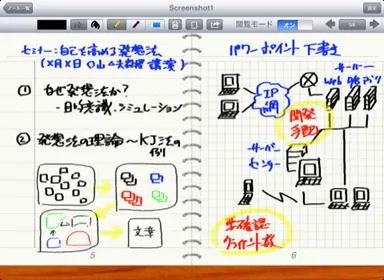 ノート一覧
Screenshot1
閲覧モード
オン
セミナー:自己を高める発想法
(×月×日 〇山△夫教授 講演)
① なぜ発想法か?
- 目的意識、シミュレーション
② 発想法の理論〜KJ法の
例
文章
5
パワーポイント下書き
サーバー
Web
IP
網
開発
手配
サーバー
センター
要確認
クライアント数
6